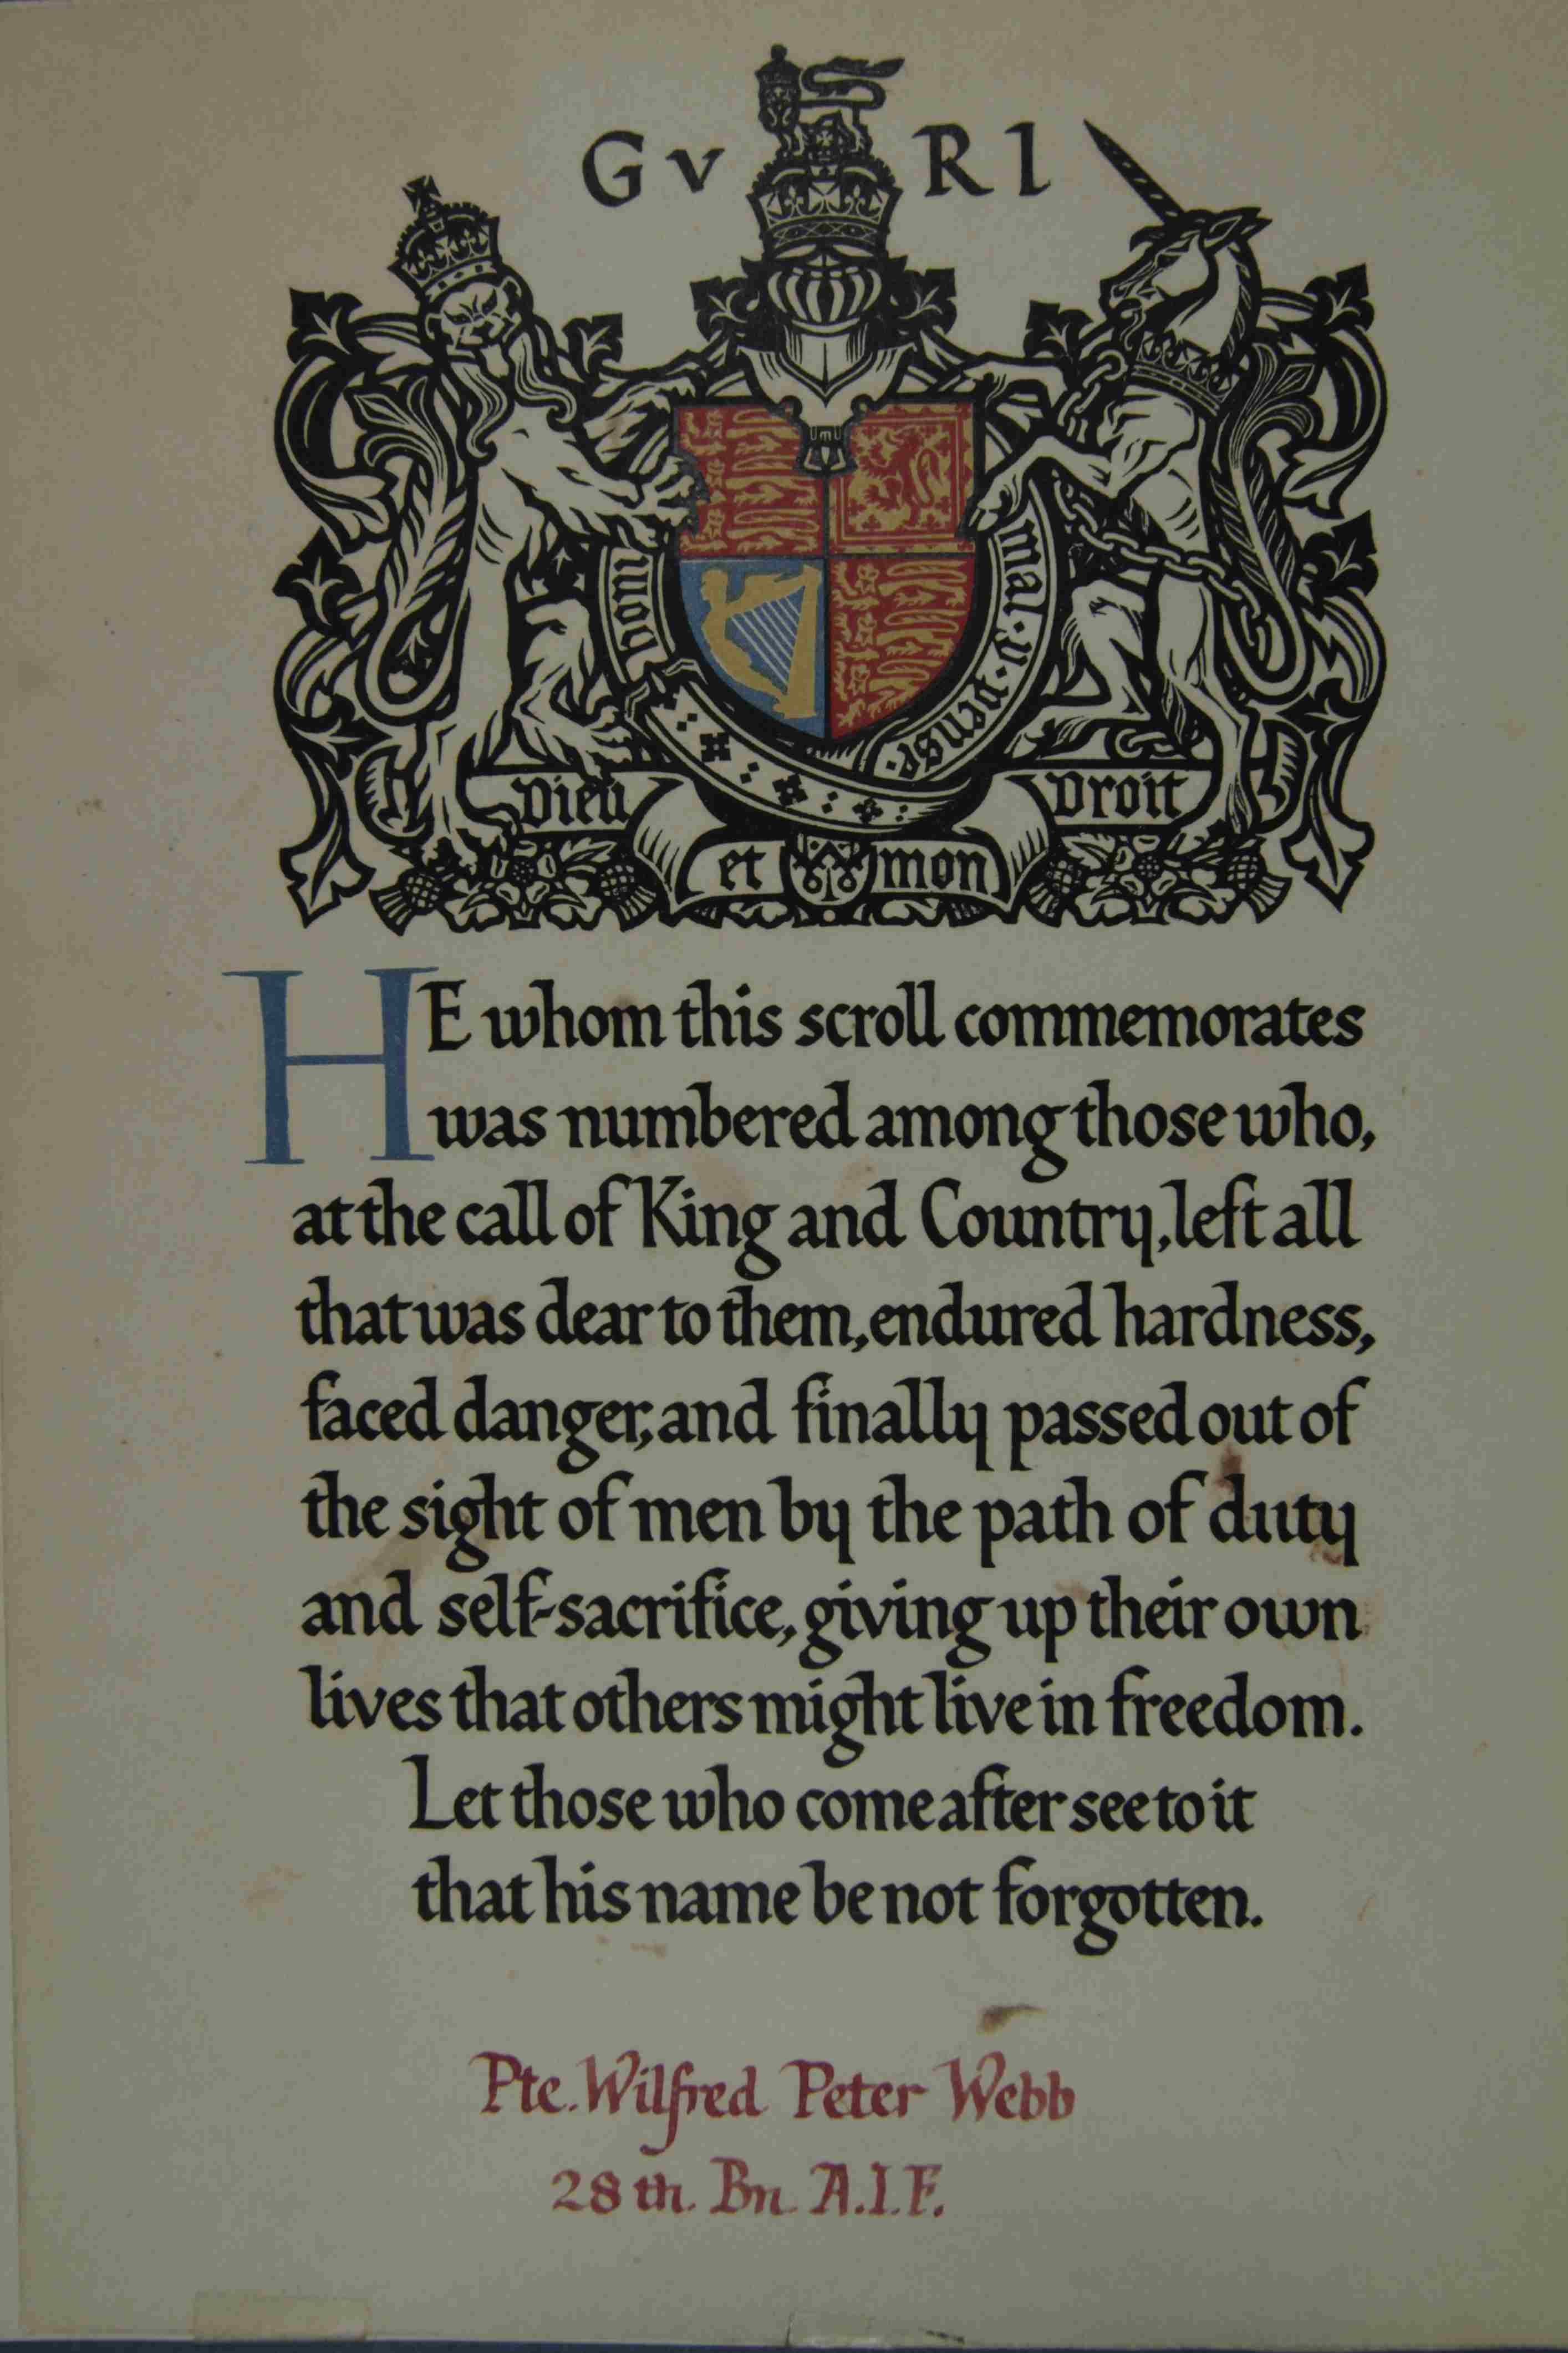 GV RI
HONI
mal·y·pense·
Dieu Droit
et mon
HE whom this scroll commemorates
was numbered among those who,
at the call of King and Country, left all
that was dear to them, endured hardness,
faced danger, and finally passed out of
the sight of men by the path of duty
and self-sacrifice, giving up their own
lives that others might live in freedom.
Let those who come after see to it
that his name be not forgotten.
Pte. Wilfred Peter Webb
28th. Bn. A.I.F.